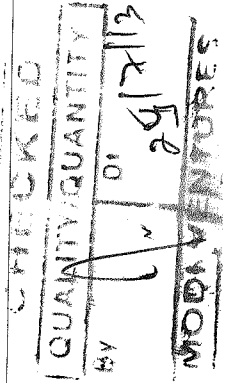 CHECKED
QUALITY/QUANTITY
By Dt
MODI VENTURES